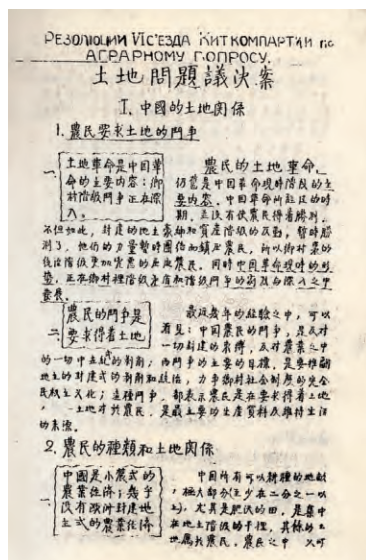 РЕЗОЛЮЦИИ VI С'ЕЗДА КИТКОМПАРТИИ ПО
АГРАРНОМУ ВОПРОСУ.
土地問題議決案
I. 中國的土地関係
1. 農民要求土地的鬥爭
一、
土地革命是中国革
命的主要内容；鄉
村階級鬥爭正在深
入。
農民的土地革命，
仍舊是中国革命現時階段的主
要内容。中国革命
期，
不但如此，封建的地主豪紳和資產階級的反動，暫時勝
利了，他們的力量暫時團結而鎮压農民，所以鄉村裏的
統治階級更加
同時中国革命現時的形
勢，正在鄉村裡階級矛盾和階級鬥爭的
深入之中
二、
農民的鬥爭是
要求得着土地
最近幾年的經驗之中，可以
看見：中国農民的鬥爭，是反对
一切封建的束縛，反对農業之中
的一切中古式的剝削；
鬥爭的主要的目標，是要推翻
地主的封建式的剝削和統治，力爭鄉村社会制度的完全
民权主义化；這種鬥爭，都表示農民是在要求得着土地
土地对於農民，是最主要的生產資料及維持生活
的来源。
2. 農民的種類和土地関係
一、
中國是小農式的
農業経済；幾乎
沒有
封建地
主式的農業経済
中国所有可以耕種的地畝
，極大部分（至少在二分之一以
上），尤其是肥沃的田，是集中
在地主階級的手裡，其餘的土
地屬於農民。農民之中，又可